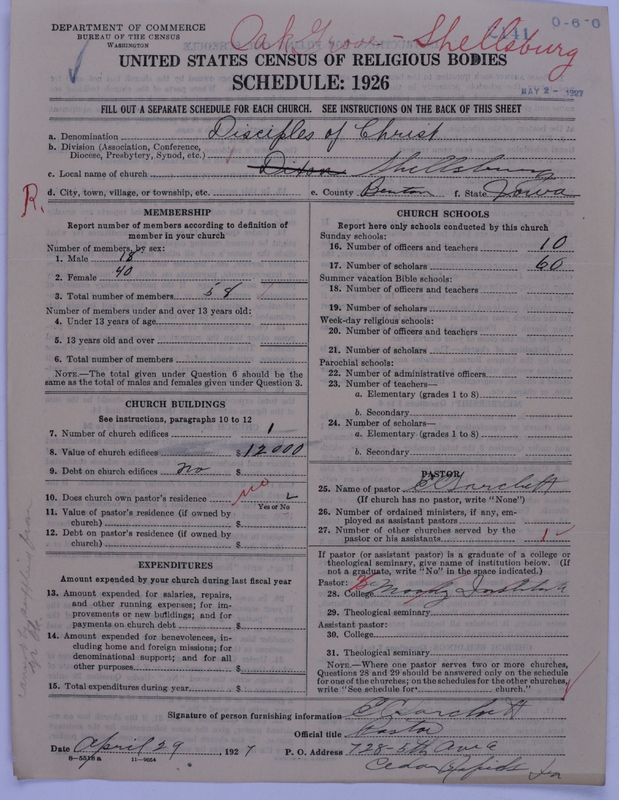 DEPARTMENT OF COMMERCE
BUREAU OF THE CENSUS
WASHINGTON
Oak Grove - Shellsburg
0-6-0
UNITED STATES CENSUS OF RELIGIOUS BODIES
SCHEDULE: 1926
MAY 2 - 1927
FILL OUT A SEPARATE SCHEDULE FOR EACH CHURCH. SEE INSTRUCTIONS ON THE BACK OF THIS SHEET
a. Denomination Disciples of Christ
b. Division (Association, Conference,
Diocese, Presbytery, Synod, etc.)
c. Local name of church Dixon Shellsburg
d. City, town, village, or township, etc. e. County Benton f. State Iowa
R.
MEMBERSHIP
Report number of members according to definition of
member in your church
Number of members, by sex:
1. Male 18
2. Female 40
3. Total number of members 58
Number of members under and over 13 years old:
4. Under 13 years of age
5. 13 years old and over
6. Total number of members
NOTE.—The total given under Question 6 should be the
same as the total of males and females given under Question 3.
CHURCH BUILDINGS
See instructions, paragraphs 10 to 12
7. Number of church edifices 1
8. Value of church edifices $12000
9. Debt on church edifices no $
10. Does church own pastor's residence no
Yes or No
11. Value of pastor's residence (if owned by
church) $
12. Debt on pastor's residence (if owned by
church) $
EXPENDITURES
Amount expended by your church during last fiscal year
13. Amount expended for salaries, repairs,
and other running expenses; for im-
provements or new buildings; and for
payments on church debt $
14. Amount expended for benevolences, in-
cluding home and foreign missions; for
denominational support; and for all
other purposes $
15. Total expenditures during year $
CHURCH SCHOOLS
Report here only schools conducted by this church
Sunday schools:
16. Number of officers and teachers 10
17. Number of scholars 60
Summer vacation Bible schools:
18. Number of officers and teachers
19. Number of scholars
Week-day religious schools:
20. Number of officers and teachers
21. Number of scholars
Parochial schools:
22. Number of administrative officers
23. Number of teachers—
a. Elementary (grades 1 to 8)
b. Secondary
24. Number of scholars—
a. Elementary (grades 1 to 8)
b. Secondary
PASTOR
25. Name of pastor
(If church has no pastor, write "None")
26. Number of ordained ministers, if any, em-
ployed as assistant pastors
27. Number of other churches served by the
pastor or his assistants 1
If pastor (or assistant pastor) is a graduate of a college or
theological seminary, give name of institution below. (If
not a graduate, write "No" in the space indicated.)
Pastor:
28. College Moody Institute
29. Theological seminary
Assistant pastor:
30. College
31. Theological seminary
NOTE.—Where one pastor serves two or more churches,
Questions 28 and 29 should be answered only on the schedule
for one of the churches; on the schedules for the other churches,
write "See schedule for church."
Signature of person furnishing information
Official title Pastor
Date April 29, 1927 P. O. Address 728-5th Ave
Cedar Rapids Ia
8-5518a 11-9654